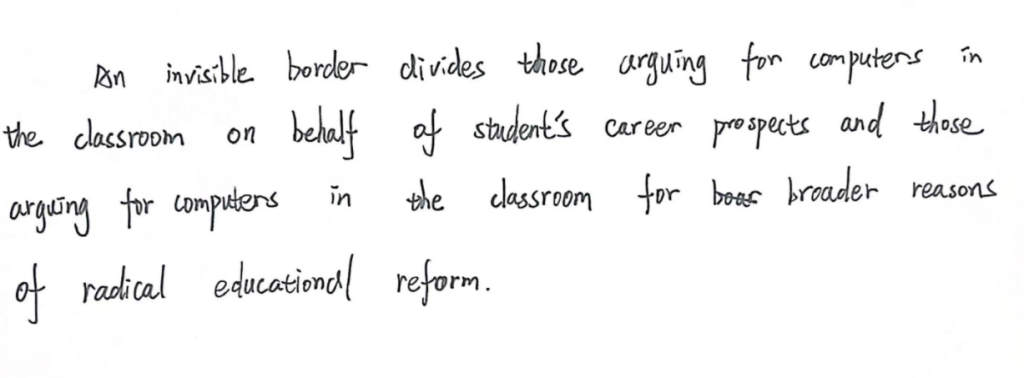 An invisible border divides those arguing for computers in
the classroom on behalf of student's career prospects and those
arguing for computers in the classroom for broader reasons
of radical educational reform.